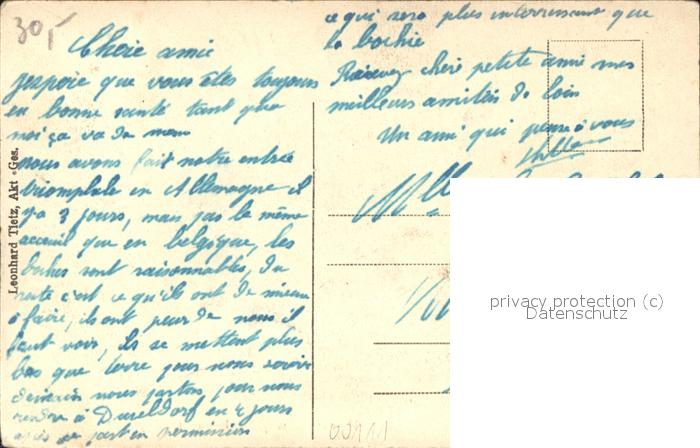 30,-
Chere amie
j'espere que vous êtes toujours
en bonne santé tant que
moi ça va de meme
nous avons fait notre entrée
triomphale en Allemagne il
y a 3 jours, mais pas le même
acceuil que en belgique, les
boches sont raisonnables, du
reste c'est ce qu'ils ont de mieux
à faire, ils ont peur de nous il
faut voir, ils se mettent plus
bas que terre pour nous servir
demain nous partons pour nous
rendre à Dusseldorf en 4 jours
après ce part en permission
ce qui sera plus interressant que
la bochie
Recevez chere petite amie mes
meilleurs amitiés de loin
Un ami qui pense à vous
Mlle
Leonhard Tietz, Akt.-Ges.
privacy protection (c)
Datenschutz